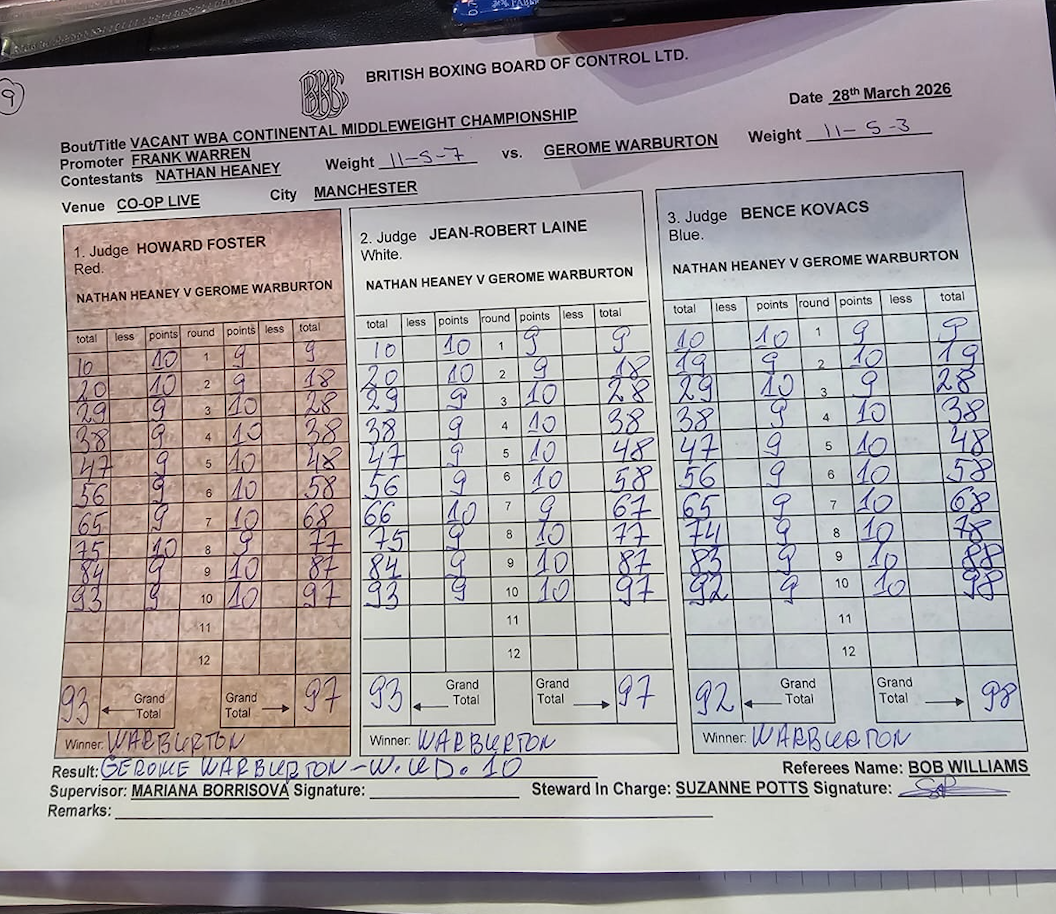 9
BBBC
BRITISH BOXING BOARD OF CONTROL LTD.
Date 28th March 2026
Bout/Title VACANT WBA CONTINENTAL MIDDLEWEIGHT CHAMPIONSHIP
Promoter FRANK WARREN
Contestants NATHAN HEANEY Weight 11-5-7 vs. GEROME WARBURTON Weight 11-5-3
Venue CO-OP LIVE City MANCHESTER
1. Judge HOWARD FOSTER
Red.
NATHAN HEANEY V GEROME WARBURTON
total less points round points less total
10 10 1 9 9
20 10 2 9 18
29 9 3 10 28
38 9 4 10 38
47 9 5 10 48
56 9 6 10 58
65 9 7 10 68
75 10 8 9 77
84 9 9 10 87
93 9 10 10 97
11
12
93 Grand Total Grand Total 97
Winner: WARBURTON
2. Judge JEAN-ROBERT LAINE
White.
NATHAN HEANEY V GEROME WARBURTON
total less points round points less total
10 10 1 9 9
20 10 2 9 18
29 9 3 10 28
38 9 4 10 38
47 9 5 10 48
56 9 6 10 58
66 10 7 9 67
75 9 8 10 77
84 9 9 10 87
93 9 10 10 97
11
12
93 Grand Total Grand Total 97
Winner: WARBURTON
3. Judge BENCE KOVACS
Blue.
NATHAN HEANEY V GEROME WARBURTON
total less points round points less total
10 10 1 9 9
19 9 2 10 19
29 10 3 9 28
38 9 4 10 38
47 9 5 10 48
56 9 6 10 58
65 9 7 10 68
74 9 8 10 78
83 9 9 10 88
92 9 10 10 98
11
12
92 Grand Total Grand Total 98
Winner: WARBURTON
Result: GEROME WARBURTON - W.U.D. 10
Referees Name: BOB WILLIAMS
Supervisor: MARIANA BORRISOVA Signature: Steward In Charge: SUZANNE POTTS Signature:
Remarks: